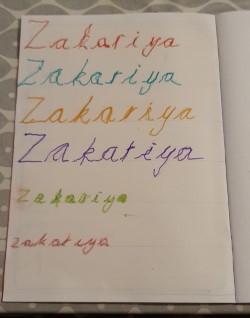 Zakariya
Zakariya
Zakariya
Zakariya
Zakariya
zakariya